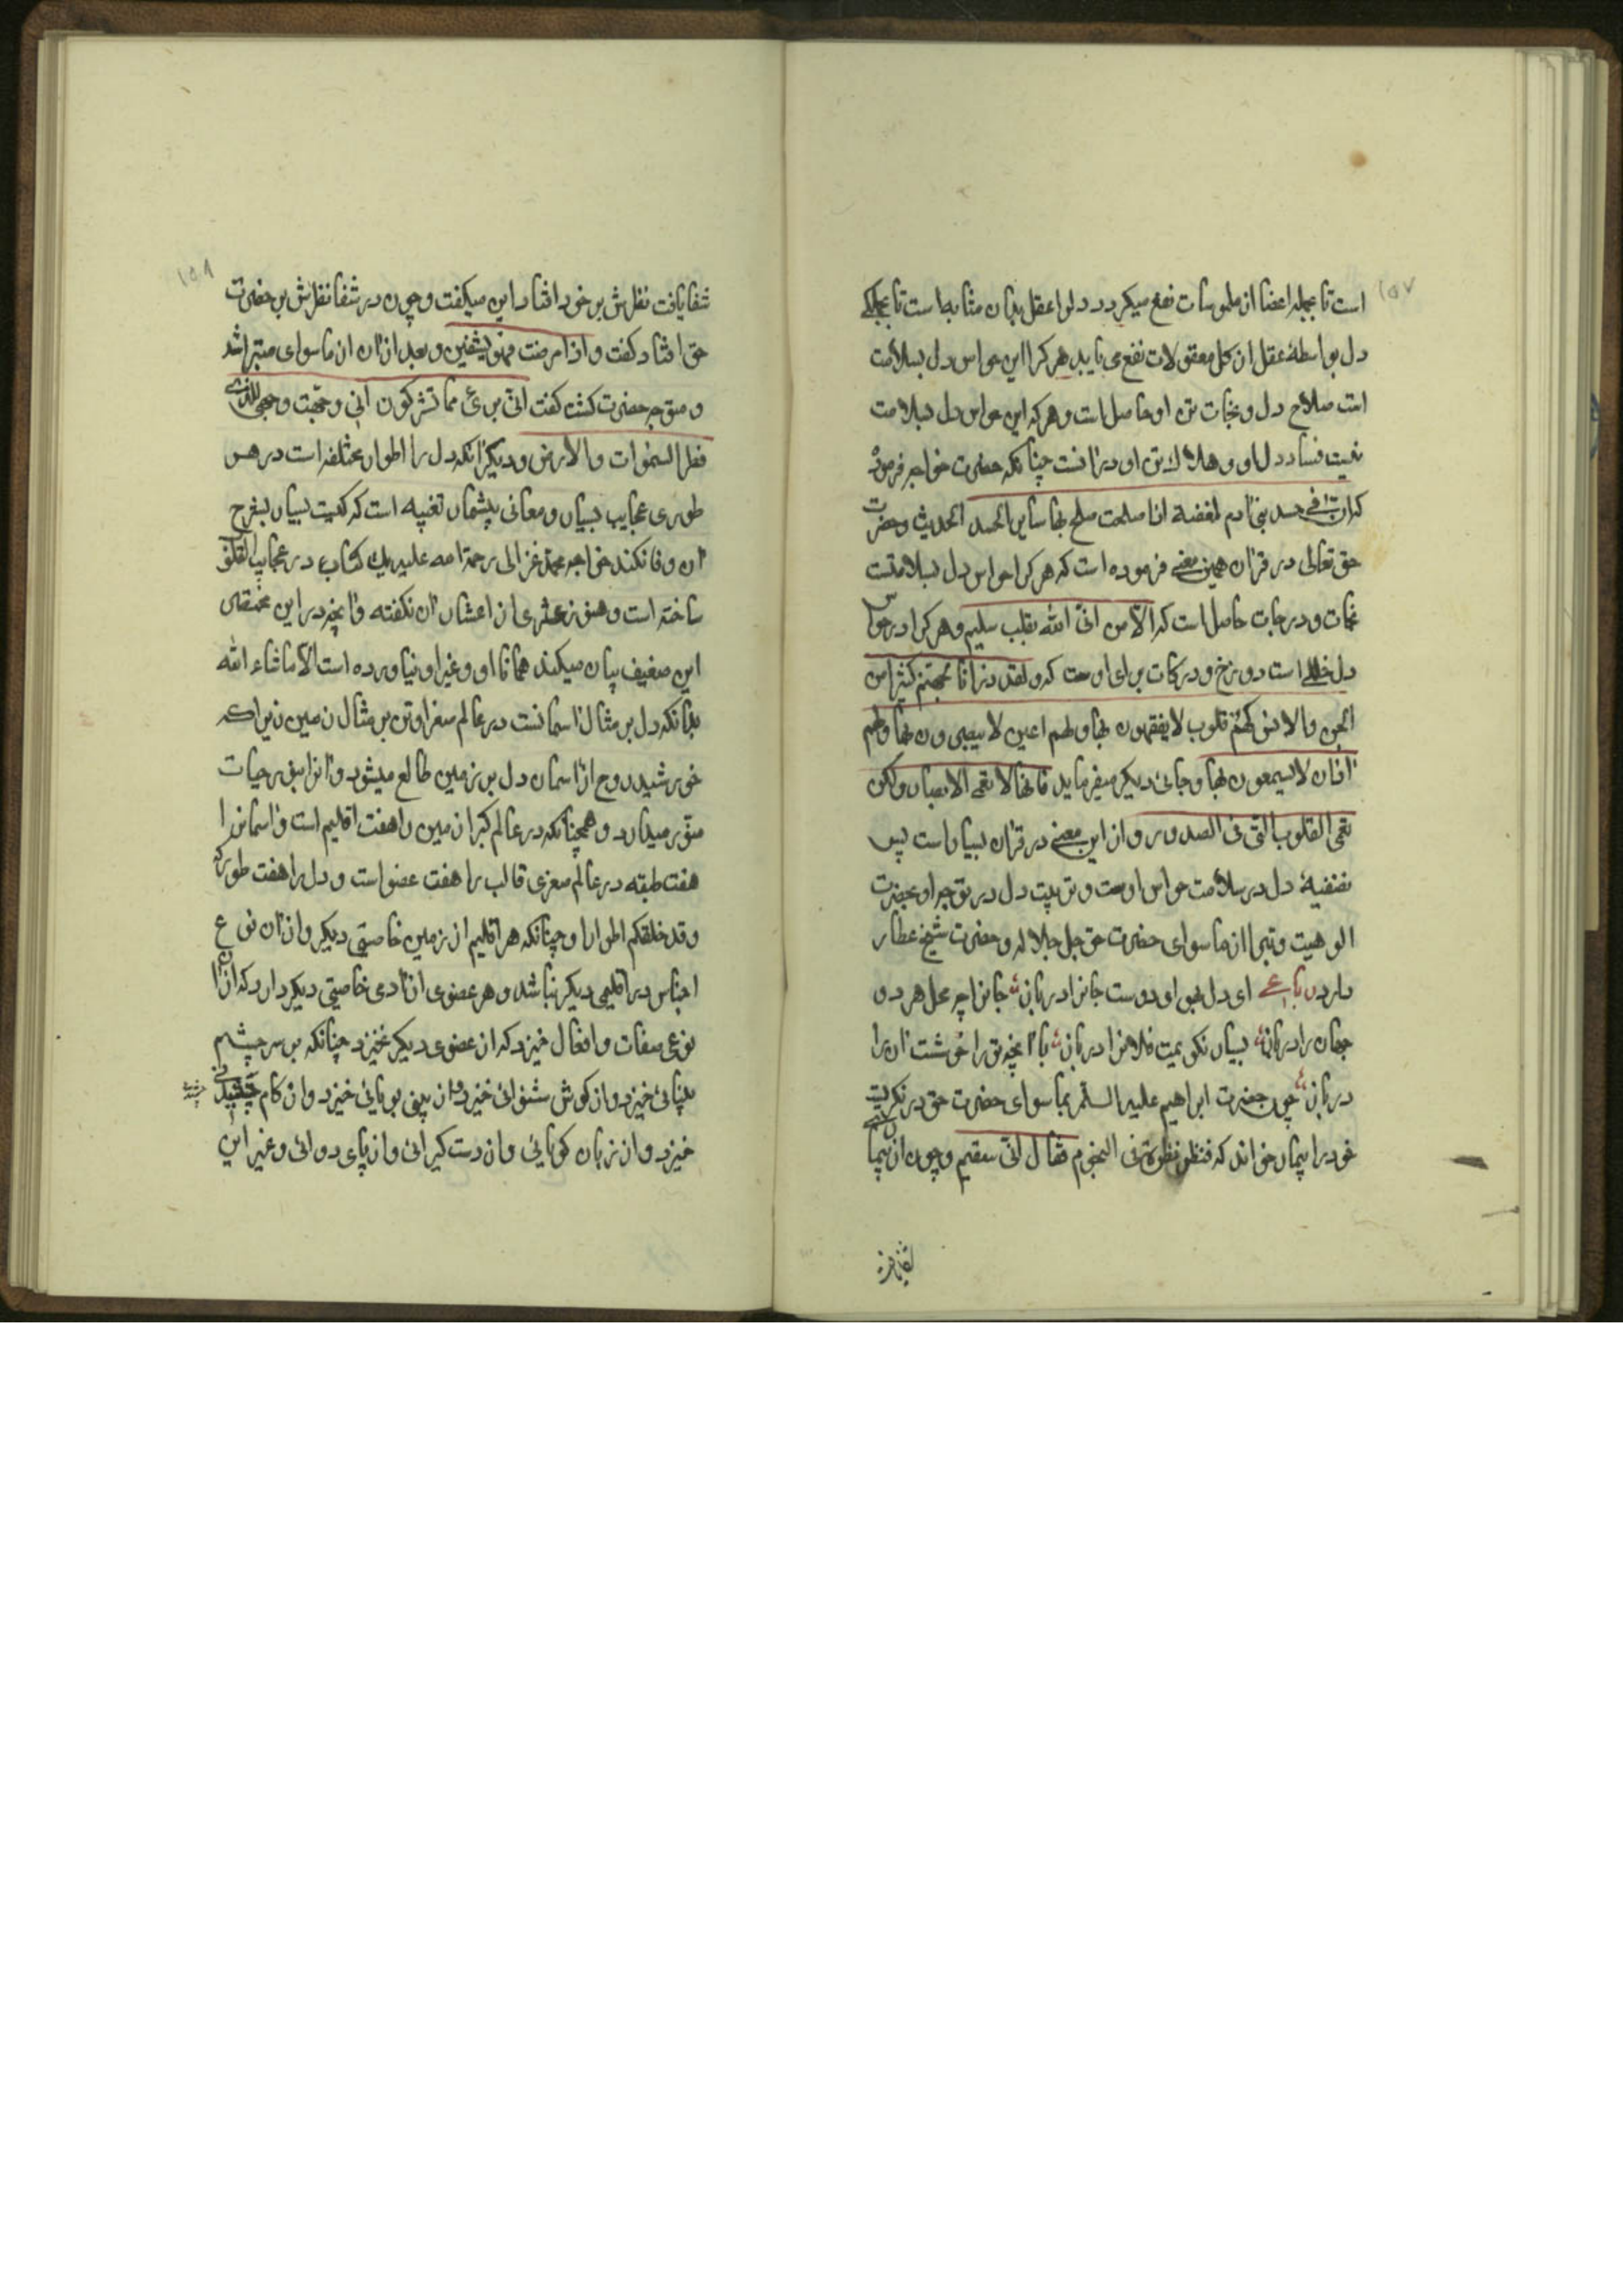 ۱۵۷
است تا بجمله اعضا از ملموسات نفع میکیرد دلرا عقل بدان مثابه است تا بجملکی
دل بواسطهٔ عقل از کل معقولات نفع می یابد هر کرا این حواس دل بسلامت
است صلاح دل و نجات تن او حاصل است و هر که این حواس دل بسلامت
نیست فساد دل او و هلاک تن او درانست چنانکه حضرت خواجه فرمود
که ان فی جسد بنی ادم لمضغة اذا صلحت صلح بها سایر الجسد الحدیث و حضرت
حق تعالی در قران همین معنی فرموده است که هر کرا حواس دل بسلامتست
نجات و درجات حاصل است که الا من اتی الله بقلب سلیم و هر کرا در حواس
دل خللی است دوزخ و درکات برای اوست که و لقد ذرانا لجهنم کثیرا من
الجن والانس لهم قلوب لا یفقهون بها ولهم اعین لا یبصرون بها ولهم
اذان لا یسمعون بها و جائی دیکر میفرماید فانها لا تعمی الابصار ولکن
تعمی القلوب التی فی الصدور و از این معنی در قران بسیار است پس
تصفیهٔ دل در سلامت حواس اوست و تربیت دل در توجه او بحضرت
الوهیت و تبرا از ما سوای حضرت حق جل جلاله و حضرت شیخ عطار
دارد رباعی ای دل بجو او دوست جانرا دریاب جانرا چه محل هر دو
جهان را دریاب بسیار نکویمت فلانرا دریاب با انچه ترا خوشست ان را
دریاب چون حضرت ابراهیم علیه السلم بماسوای حضرت حق در نکریست
خود را بیمار خواند که فنظر نظرة فی النجوم فقال انی سقیم و چون از بیماری
۱۵۸
شفا یافت نظرش بر خود افتاد این میکفت و چون در شفا نظرش بر حضرت
حق افتاد کفت واذا مرضت فهو یشفین و بعد از ان از ماسوای متبرا شد
و متوجه حضرت کشت کفت انی بریء مما تشرکون انی وجهت وجهی للذی
فطر السموات والارض و دیکر انکه دل را اطوار مختلفه است در هر
طوری عجایب بسیار و معانی بیشمار تعبیه است که کتب بسیار بشرح
ان وفا نکند خواجه محمد غزالی رحمة الله علیه یک کتاب در عجایب القلوب
ساخته است و هنوز عشری از اعشار ان نکفته و انچه در این مختصر
این ضعیف بیان میکند همانا او و غیر او نیاورده است الا ماشاء الله
بدانکه دل بر مثال اسمانست در عالم صغرا و تن بر مثال زمین زیرا که
خورشید روح از اسمان دل بر زمین طالع میشود و انرا بنور حیات
منور میدارد و همچنانکه در عالم کبرا زمین را هفت اقلیم است و اسمانرا
هفت طبقه در عالم صغری قالب را هفت عضو است و دل را هفت طور که
وقد خلقکم اطوارا و چنانکه هر اقلیم از زمین خاصیتی دیکر و از ان نوع
اجناس در اقلیمی دیکر نباشد و هر عضوی از ادمی خاصیتی دیکر دارد که از ان
نوعی صفات و افعال خیزد که از عضوی دیکر نخیزد چنانکه بر سر چشم
بینائی خیزد و از کوش شنوائی خیزد و از بینی بویائی خیزد و از کام
خیزد و از زبان کویائی و از دست کیرائی و از پای دوائی و غیر این